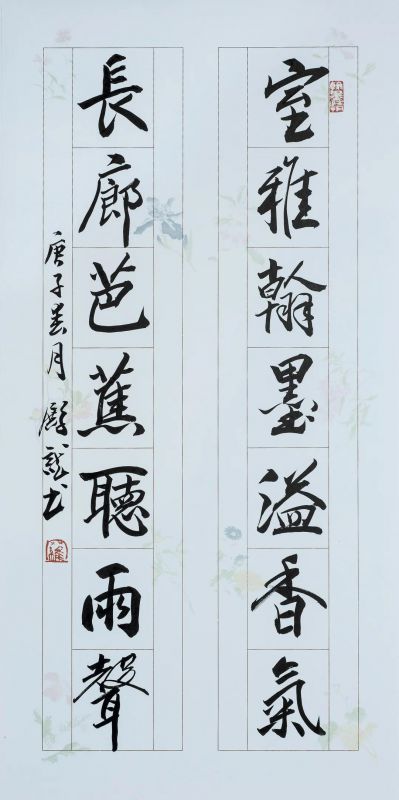 室雅翰墨溢香氣
長廊芭蕉聽雨聲
庚子春月